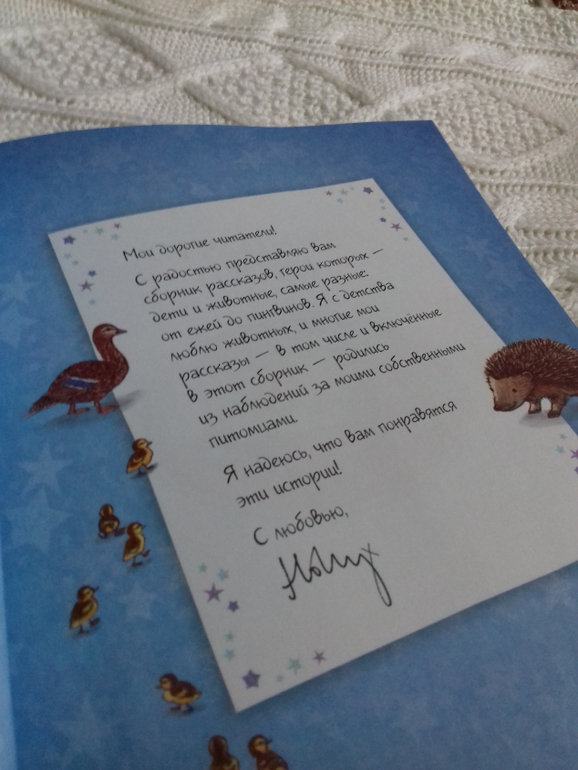 Мои дорогие читатели!
С радостью представляю вам
сборник рассказов, герои которых —
дети и животные, самые разные:
от ежей до пингвинов. Я с детства
люблю животных, и многие мои
рассказы — в том числе и включённые
в этот сборник — родились
из наблюдений за моими собственными
питомцами.
Я надеюсь, что вам понравятся
эти истории!
С любовью,
Holly x